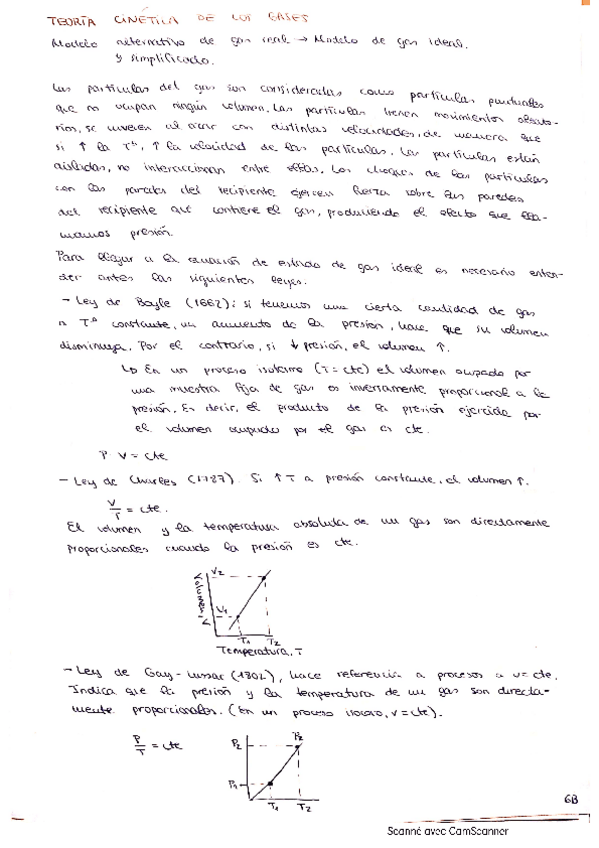 TEORÍA CINÉTICA DE LOS GASES
Modelo alternativo de gas real → Modelo de gas ideal.
y simplificado.
Las partículas del gas son consideradas como partículas puntuales
que no ocupan ningún volumen. Las partículas tienen movimientos aleato-
rios, se mueven al azar con distintas velocidades, de manera que
si ↑ la Tª, ↑ la velocidad de las partículas. Las partículas están
aisladas, no interaccionan entre ellas. Los choques de las partículas
con las paredes del recipiente ejercen fuerza sobre las paredes
del recipiente que contiene el gas, produciendo el efecto que lla-
mamos presión.
Para llegar a la ecuación de estado de gas ideal es necesario enten-
der antes las siguientes leyes.
- Ley de Boyle (1662): si tenemos una cierta cantidad de gas
a Tª constante, un aumento de la presión, hace que su volumen
disminuya. Por el contrario, si ↓ presión, el volumen ↑.
↳ En un proceso isotermo (T = cte) el volumen ocupado por
una muestra fija de gas es inversamente proporcional a la
presión. Es decir, el producto de la presión ejercida por
el volumen ocupado por el gas es cte.
P V = cte
- Ley de Charles (1787). Si ↑ T a presión constante, el volumen ↑.
V/T = cte.
El volumen y la temperatura absoluta de un gas son directamente
proporcionales cuando la presión es cte.
V2
Volumen, V
V1
T1 T2
Temperatura, T
- Ley de Gay-Lussac (1802), hace referencia a procesos a v = cte.
Indica que la presión y la temperatura de un gas son directa-
mente proporcionales. (En un proceso isocoro, v = cte).
P/T = cte
P2 P2
P1
T1 T2
6B
Scanné avec CamScanner